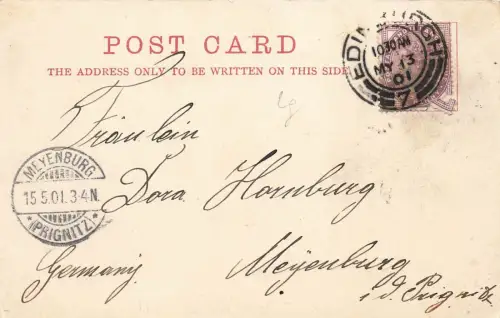 POST CARD
THE ADDRESS ONLY TO BE WRITTEN ON THIS SIDE
EDINBURGH
10 30 AM
MY 13
01
7
Fräulein
MEYENBURG
15.5.01.3-4N.
*(PRIGNITZ)*
Dora Hornburg
Germany.
Meyenburg
i. d. Prignitz